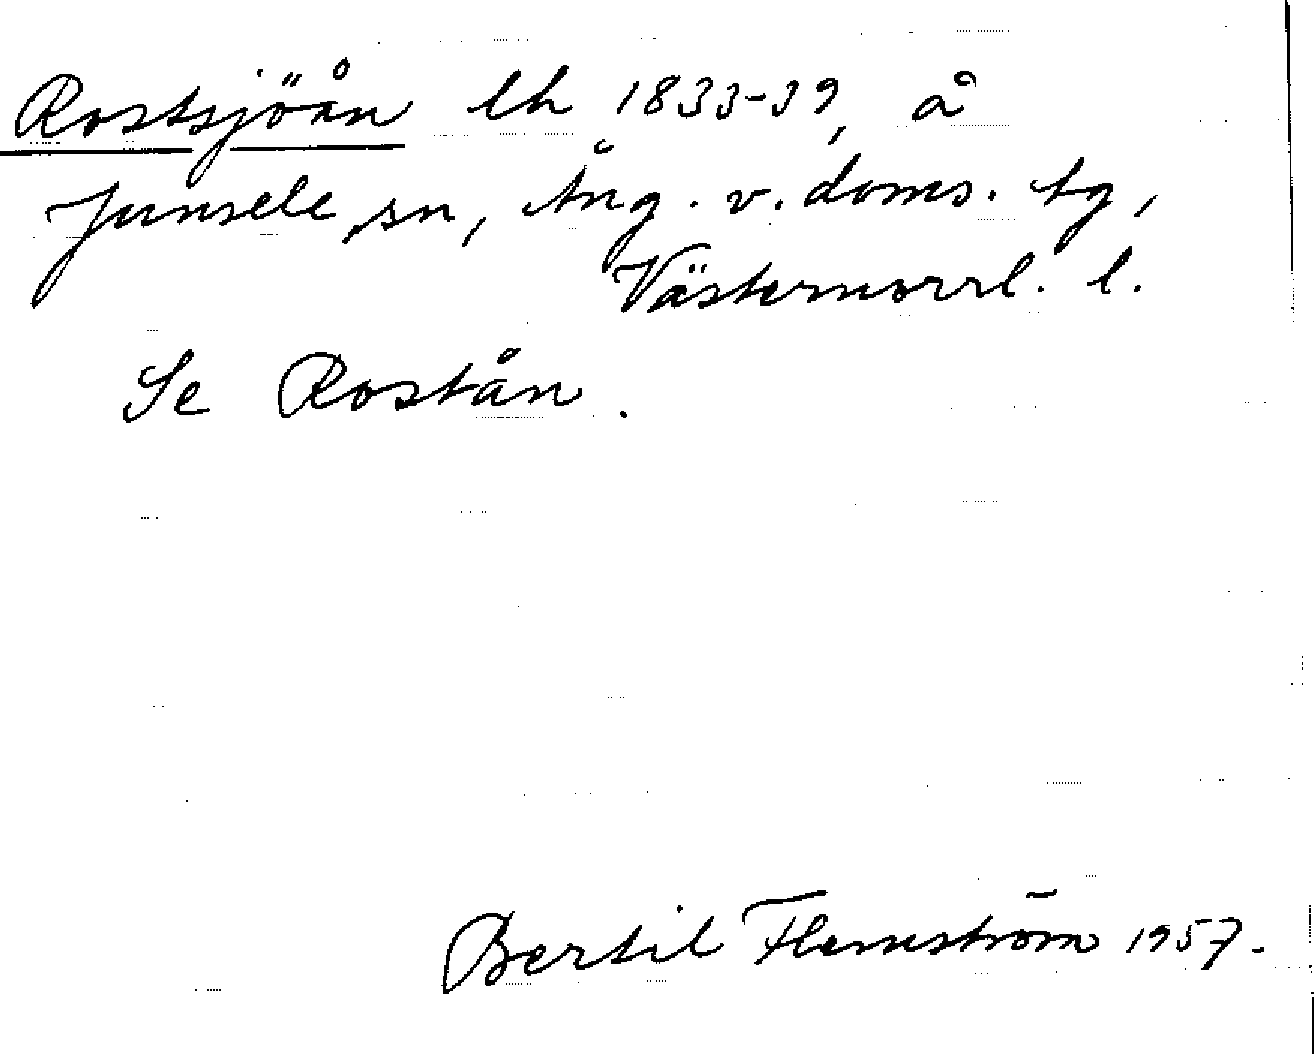 Rostsjöån lh 1833-39, å
Junsele sn, Ång. v. doms. tg,
Västernorrl. l.
Se Rostån.
Bertil Flemström 1957.